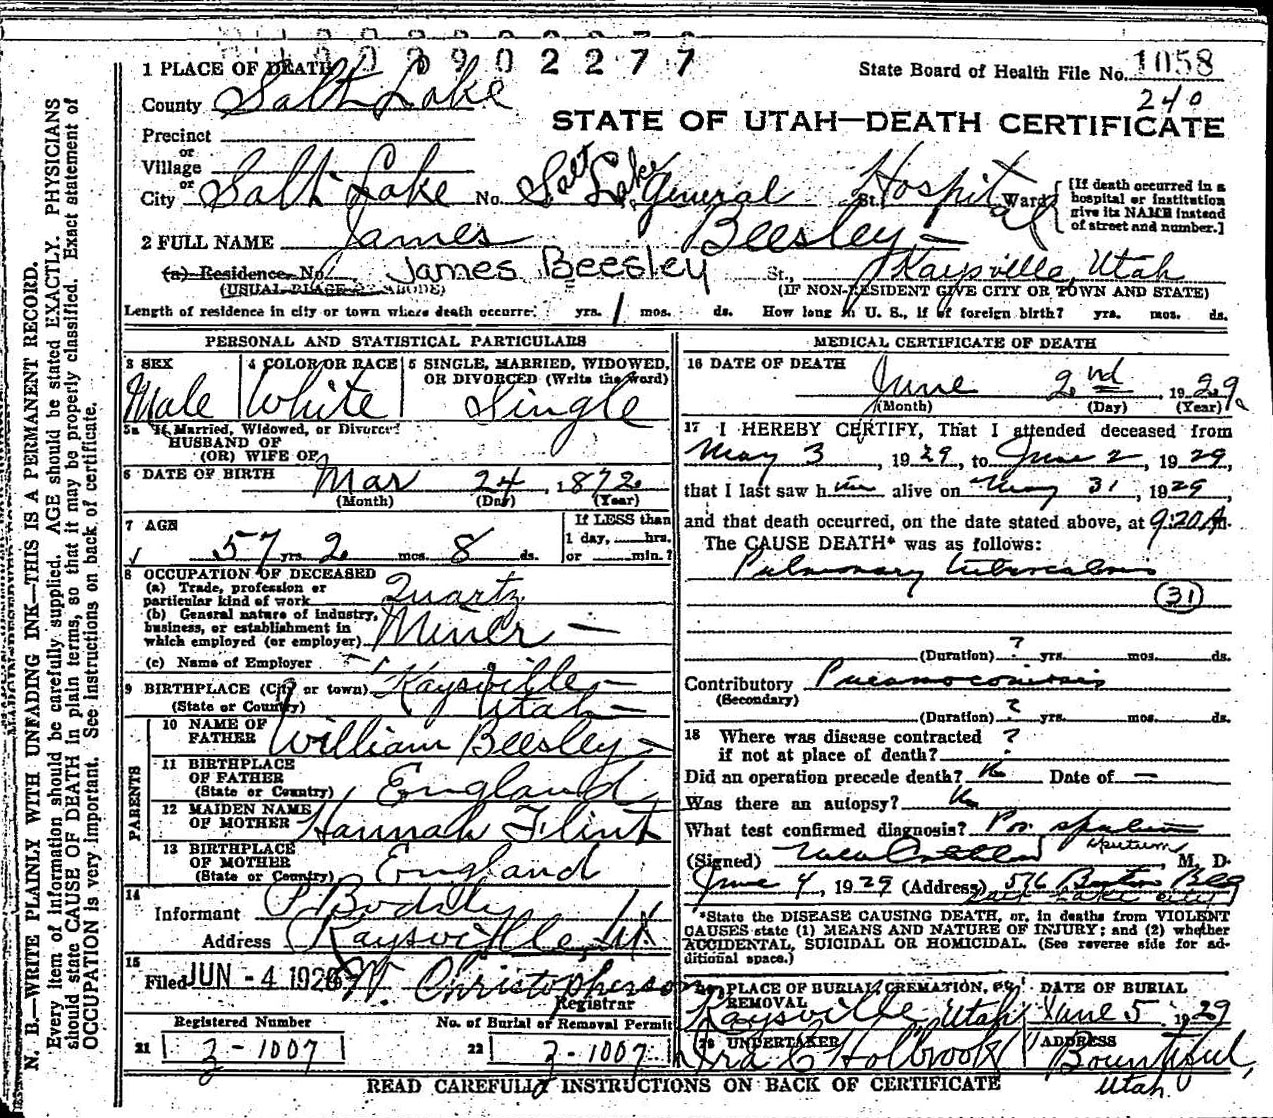 1 PLACE OF DEATH
0 2 2 7 7
State Board of Health File No. 1058
240
County Salt Lake
STATE OF UTAH—DEATH CERTIFICATE
Precinct
or
Village
or
City Salt Lake No. Salt Lake General Hospital St. Ward
[If death occurred in a hospital or institution give its NAME instead of street and number.]
2 FULL NAME James Beesley
(a) Residence. No. James Beesley St., Kaysville, Utah
(USUAL PLACE OF ABODE) (IF NON-RESIDENT GIVE CITY OR TOWN AND STATE)
Length of residence in city or town where death occurred yrs. 1 mos. ds. How long in U. S., if of foreign birth? yrs. mos. ds.
PERSONAL AND STATISTICAL PARTICULARS
3 SEX 4 COLOR OR RACE 5 SINGLE, MARRIED, WIDOWED, OR DIVORCED (Write the word)
Male White Single
5a If Married, Widowed, or Divorced
HUSBAND OF
(OR) WIFE OF
6 DATE OF BIRTH Mar 24, 1872
(Month) (Day) (Year)
7 AGE If LESS than
57 yrs. 2 mos. 8 ds. 1 day, hrs.
or min.?
8 OCCUPATION OF DECEASED
(a) Trade, profession or
particular kind of work Quartz
(b) General nature of industry,
business, or establishment in
which employed (or employer) Miner —
(c) Name of Employer
9 BIRTHPLACE (City or town) Kaysville —
(State or Country) Utah —
PARENTS
10 NAME OF
FATHER William Beesley
11 BIRTHPLACE
OF FATHER
(State or Country) England
12 MAIDEN NAME
OF MOTHER Hannah Flint
13 BIRTHPLACE
OF MOTHER
(State or Country) England
14
Informant
Address Kaysville, Ut.
15
Filed JUN - 4 1929 W. Christopherson
Registrar
Registered Number No. of Burial or Removal Permit
21 3-1007 22 3-1007
MEDICAL CERTIFICATE OF DEATH
16 DATE OF DEATH
June 2nd 1929
(Month) (Day) (Year)
17 I HEREBY CERTIFY, That I attended deceased from
May 3, 1929, to June 2, 1929,
that I last saw him alive on May 31, 1929
and that death occurred, on the date stated above, at 9:20 A m.
The CAUSE DEATH* was as follows:
Pulmonary tuberculosis
31
(Duration) ? yrs. mos. ds.
Contributory Pneumoconiosis
(Secondary)
(Duration) ? yrs. mos. ds.
18 Where was disease contracted ?
if not at place of death?
Did an operation precede death? No Date of —
Was there an autopsy? No
What test confirmed diagnosis? Pos. sputum
sputum
(Signed) M. D.
June 4, 1929 (Address) 516 Boston Bldg
Salt Lake City
*State the DISEASE CAUSING DEATH, or, in deaths from VIOLENT
CAUSES state (1) MEANS AND NATURE OF INJURY; and (2) whether
ACCIDENTAL, SUICIDAL OR HOMICIDAL. (See reverse side for ad-
ditional space.)
19 PLACE OF BURIAL, CREMATION, OR DATE OF BURIAL
REMOVAL
Kaysville, Utah June 5, 1929
20 UNDERTAKER ADDRESS
Ira C Holbrook Bountiful,
Utah
READ CAREFULLY INSTRUCTIONS ON BACK OF CERTIFICATE
N. B.—WRITE PLAINLY WITH UNFADING INK—THIS IS A PERMANENT RECORD.
Every item of information should be carefully supplied. AGE should be stated EXACTLY. PHYSICIANS
should state CAUSE OF DEATH in plain terms, so that it may be properly classified. Exact statement of
OCCUPATION is very important. See instructions on back of certificate.